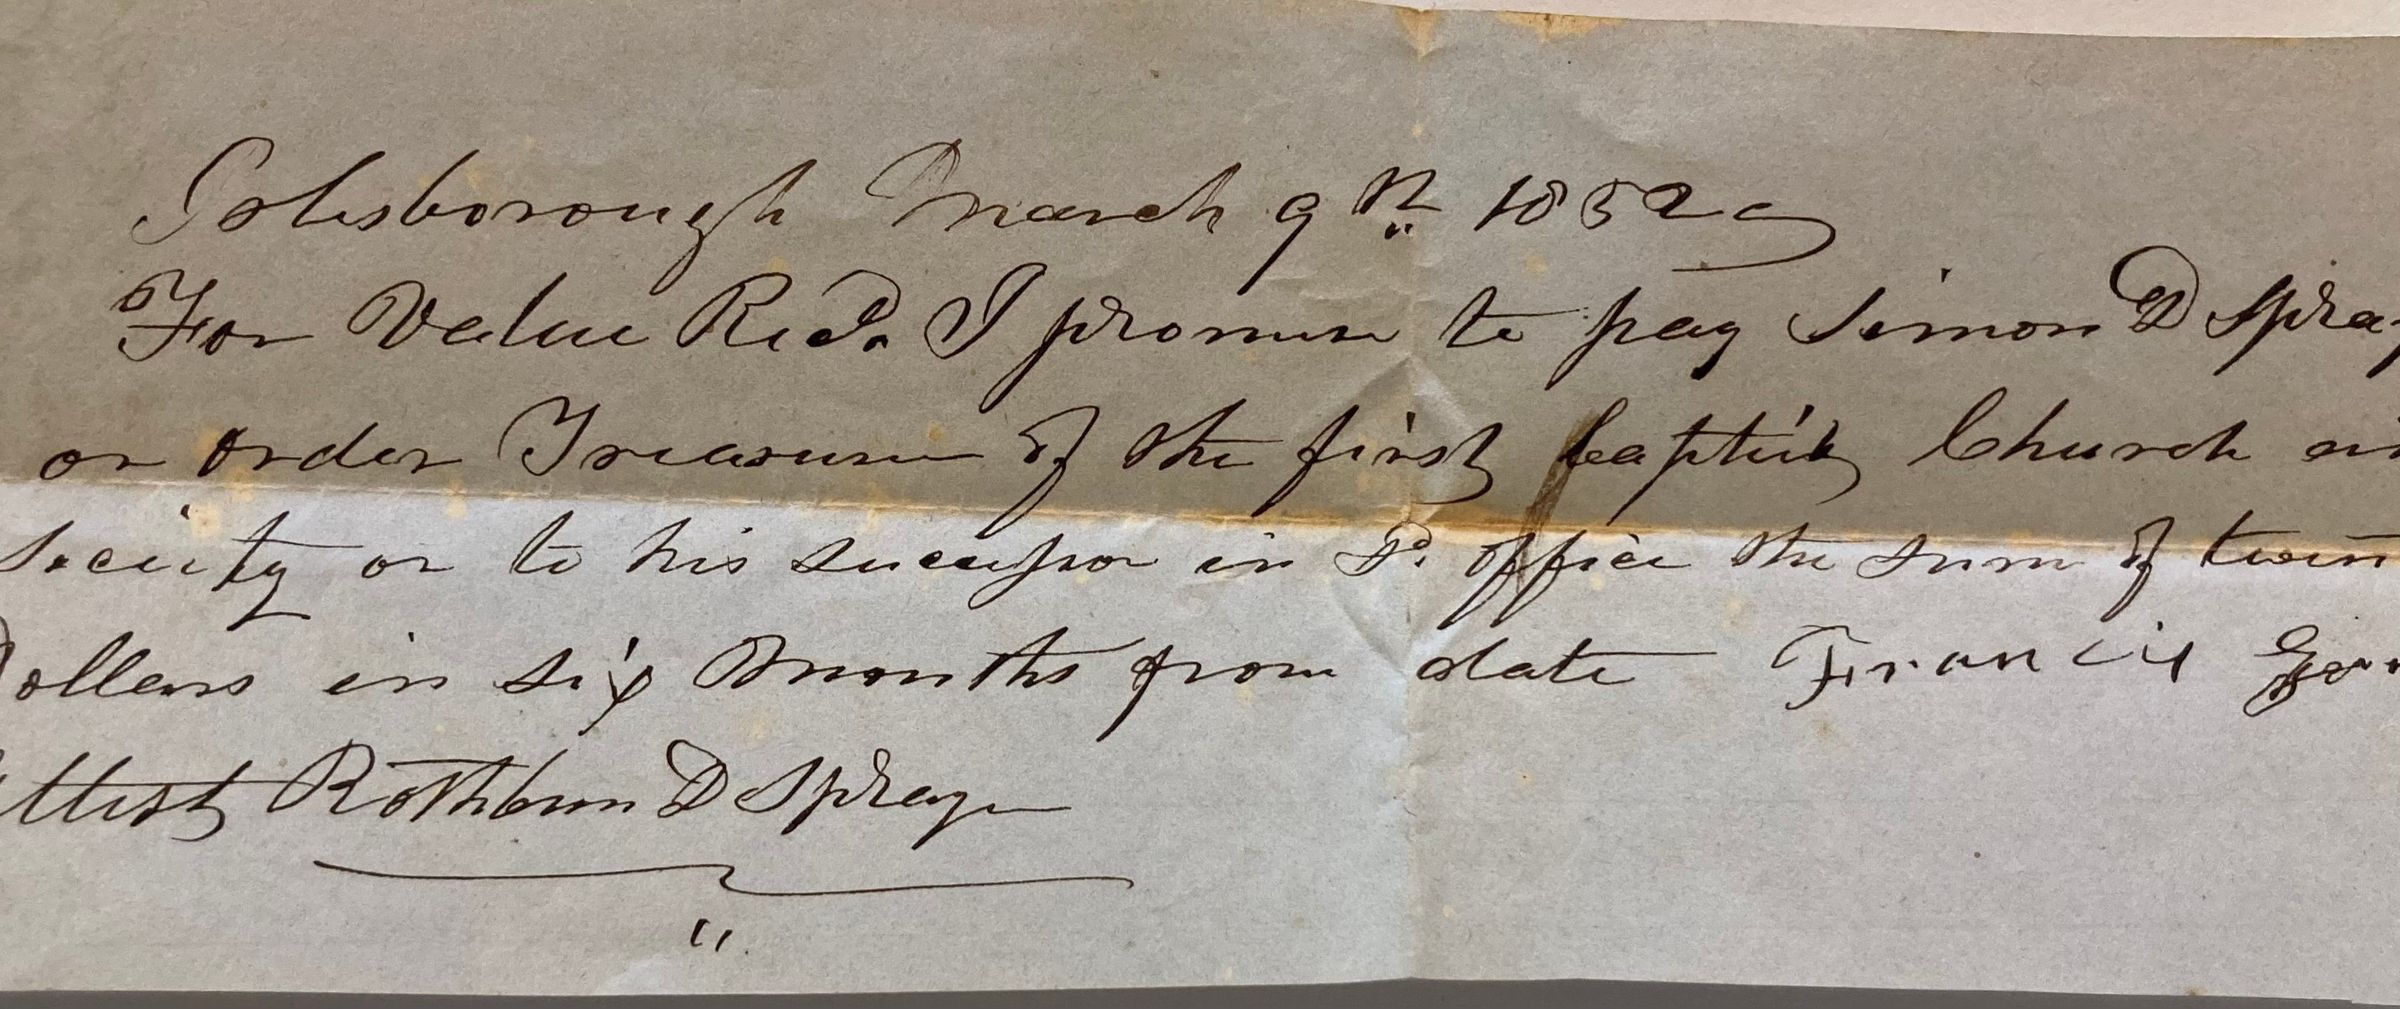 Islesborough March 9th 1852
For Value Recd. I promise to pay Simon D Spra
or order Treasurer of the first baptist Church an
society or to his successor in sd office the sum of twen
Dollars in six months from date Francis
Attest Rothbun D Sprague